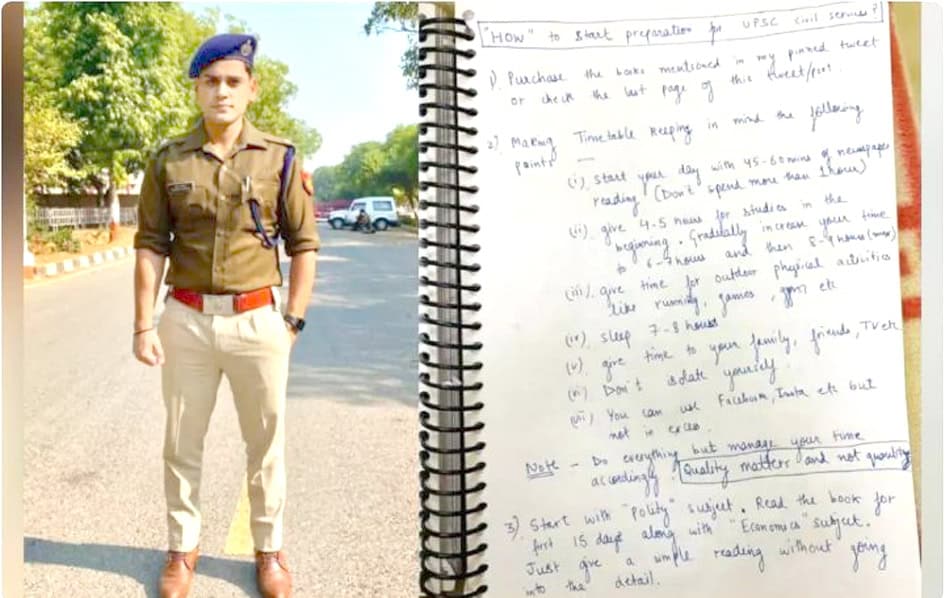 "HOW" to start preparation for UPSC civil services?
1) Purchase the books mentioned in my pinned tweet
or check the last page of this tweet/post.
2) Making Timetable keeping in mind the following
points —
(i) start your day with 45-60 mins of newspaper
reading (Don't spend more than 1 hour)
(ii) give 4-5 hours for studies in the
beginning. Gradually increase your time
to 6-7 hours and then 8-9 hours (max)
(iii) give time for outdoor physical activities
like running, games, gym etc
(iv) sleep 7-8 hours
(v) give time to your family, friends, TV etc
(vi) Don't isolate yourself.
(vii) You can use Facebook, Insta etc but
not in excess.
Note - Do everything but manage your time
accordingly. Quality matters and not quantity
3) Start with "Polity" subject. Read the book for
first 15 days along with "Economics" subject.
Just give a simple reading without going
into the detail.